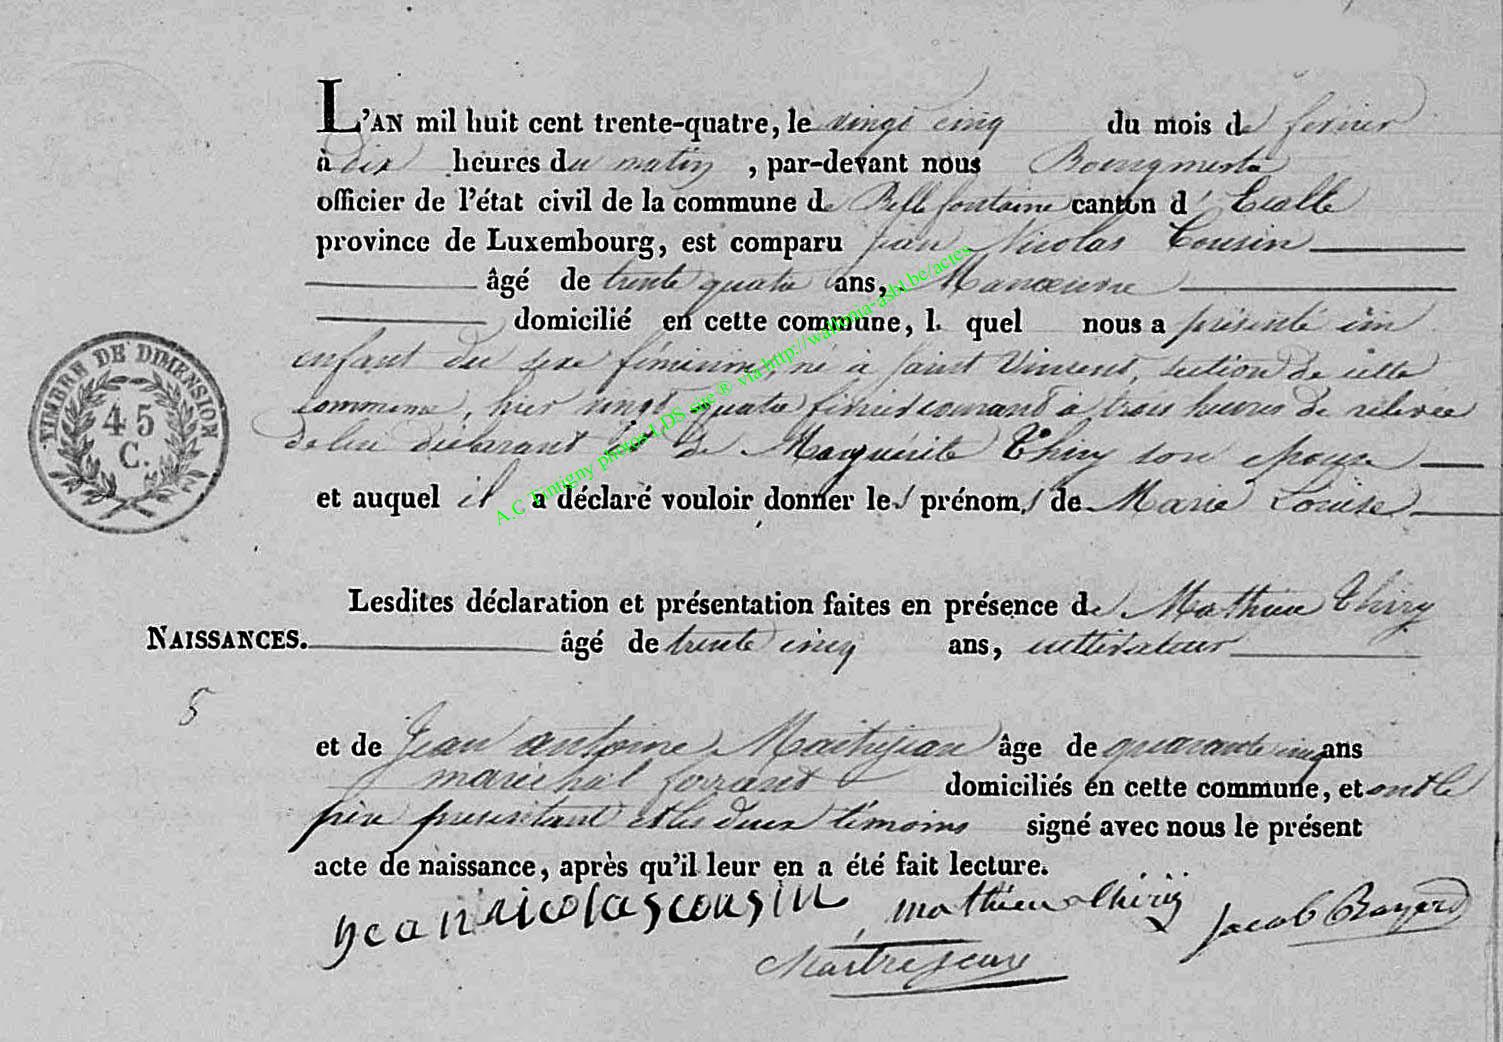 L'AN mil huit cent trente-quatre, le vingt cinq du mois de février
à dix heures du matin, par-devant nous Bourgmestre
officier de l'état civil de la commune de Bellefontaine canton d'Etalle
province de Luxembourg, est comparu jean Nicolas Cousin
âgé de trente quatre ans, Manœuvre
domicilié en cette commune, l quel nous a présenté un
enfant du sexe féminin, né à Saint Vincent, section de cette
commune, hier vingt quatre février courant à trois heures de relevée
de lui déclarant & de Marguérite Thiry son epouse
et auquel il a déclaré vouloir donner les prénoms de Marie Louise
Lesdites déclaration et présentation faites en présence de Mathieu Thiry
NAISSANCES. âgé de trente cinq ans, cultivateur
5
et de Jean antoine Maitrejean âge de quarante cinq ans
maréchal ferrant domiciliés en cette commune, et ont le
père présentant et les deux témoins signé avec nous le présent
acte de naissance, après qu'il leur en a été fait lecture.
jean nicolas cousin mathieu thiriy Jacob Bayard
Maitrejean
TIMBRE DE DIMENSION
45
C.
A.C Tintigny photos LDS site ® via http://wallonia-asbl.be/actes